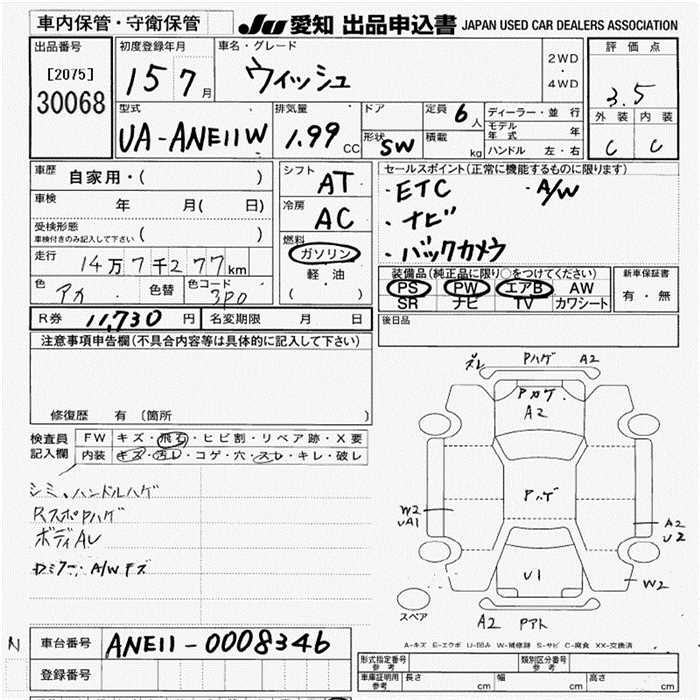 車内保管・守衛保管 JU 愛知 出品申込書 JAPAN USED CAR DEALERS ASSOCIATION
出品番号 初度登録年月 車名・グレード 2WD・4WD 評価点
[2075] 15 7月 ウィッシュ 3.5
30068
型式 排気量 ドア 定員 6人 ディーラー・並行 外装 内装
UA-ANE11W 1.99 CC 形状 SW 積載 kg モデル年式 年 C C
ハンドル 左・右
車歴 自家用・( ) シフト AT セールスポイント(正常に機能するものに限ります)
車検 年 月( 日) 冷房 AC ・ETC ・A/W
受検形態 車検付きのみ記入して下さい ( ) ・ナビ
燃料 ガソリン ・バックカメラ
走行 14万7千277km 軽・油 装備品(純正品に限り○をつけてください) 新車保証書
色 アカ 色替 色コード 3P0 ( ) PS PW エアB AW 有・無
SR ナビ TV カワシート
R券 11,730円 名変期限 月 日 後日品
注意事項申告欄(不具合内容等は具体的に記入して下さい)
修復歴 有 (箇所
検査員記入欄 FW キズ・飛石・ヒビ割・リペア跡・X要
内装 キズ・汚レ・コゲ・穴・スレ・キレ・破レ
シミ、ハンドルハゲ
RスポPハゲ
ボディAU
A/Wキズ
ズレ Pハゲ A2
Pカケ
A2
Pハゲ
W2
UA1
A2
U2
U1
W2
スペア
A2 Pアト
A-キズ E-エクボ U-凹み W-補修跡 S-サビ C-腐食 XX-交換済
N 車台番号 ANE11-0008346
登録番号
形式指定番号 参考 類別区分番号 参考
車庫証明用 参考 長さ cm 幅 cm 高さ cm